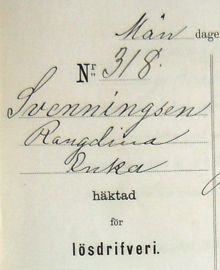 Mån dage
Nr 318.
Svenningsen
Rangdina
Enka
häktad
för
lösdrifveri.